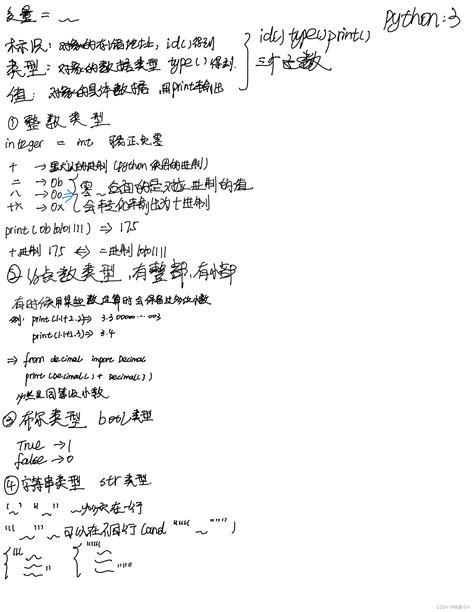 变量 = ~
Python:3
标识: 对象的存储地址, id()得到
类型: 对象的数据类型 type()得到
值: 对象的具体数据, 用print输出
id() type() print()
三个函数
① 整数类型
integer = int 正负零
十 → 默认的进制 (python 使用的进制)
二 → 0b
八 → 0o
十六 → 0x
零~ 后面的是对应进制的值
会转化成输出为十进制
print(0b10101111) => 175
十进制 175 <=> 二进制 10101111
② 浮点数类型, 有整部, 有小部
有时候用某些数运算时会保留过多位小数
例: print(1.1+2.2) => 3.300000……003
print(1.1+2.3) => 3.4
=> from decimal import Decimal
print(Decimal() + Decimal())
③ 布尔类型 bool类型
True → 1
False → 0
④ 字符串类型 str类型
'~' "~" ~必须在一行
'''~''' ~可以在不同行 (and """~""")
'''~~~'''
"""~~~"""